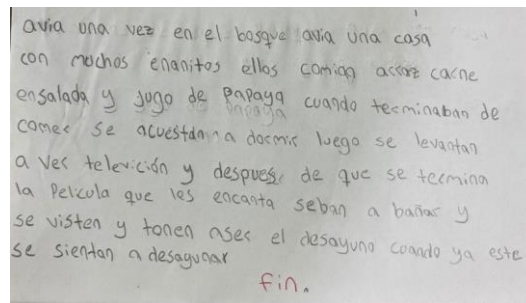 avia una vez en el bosque avia una casa
con muchos enanitos ellos comian arroz carne
ensalada y jugo de papaya cuando terminaban de
comer se acuestan a dormir luego se levantan
a ver televición y despues de que se termina
la Pelicula que les encanta seban a bañar y
se visten y ponen aser el desayuno cuando ya este
se sientan a desayunar
fin.